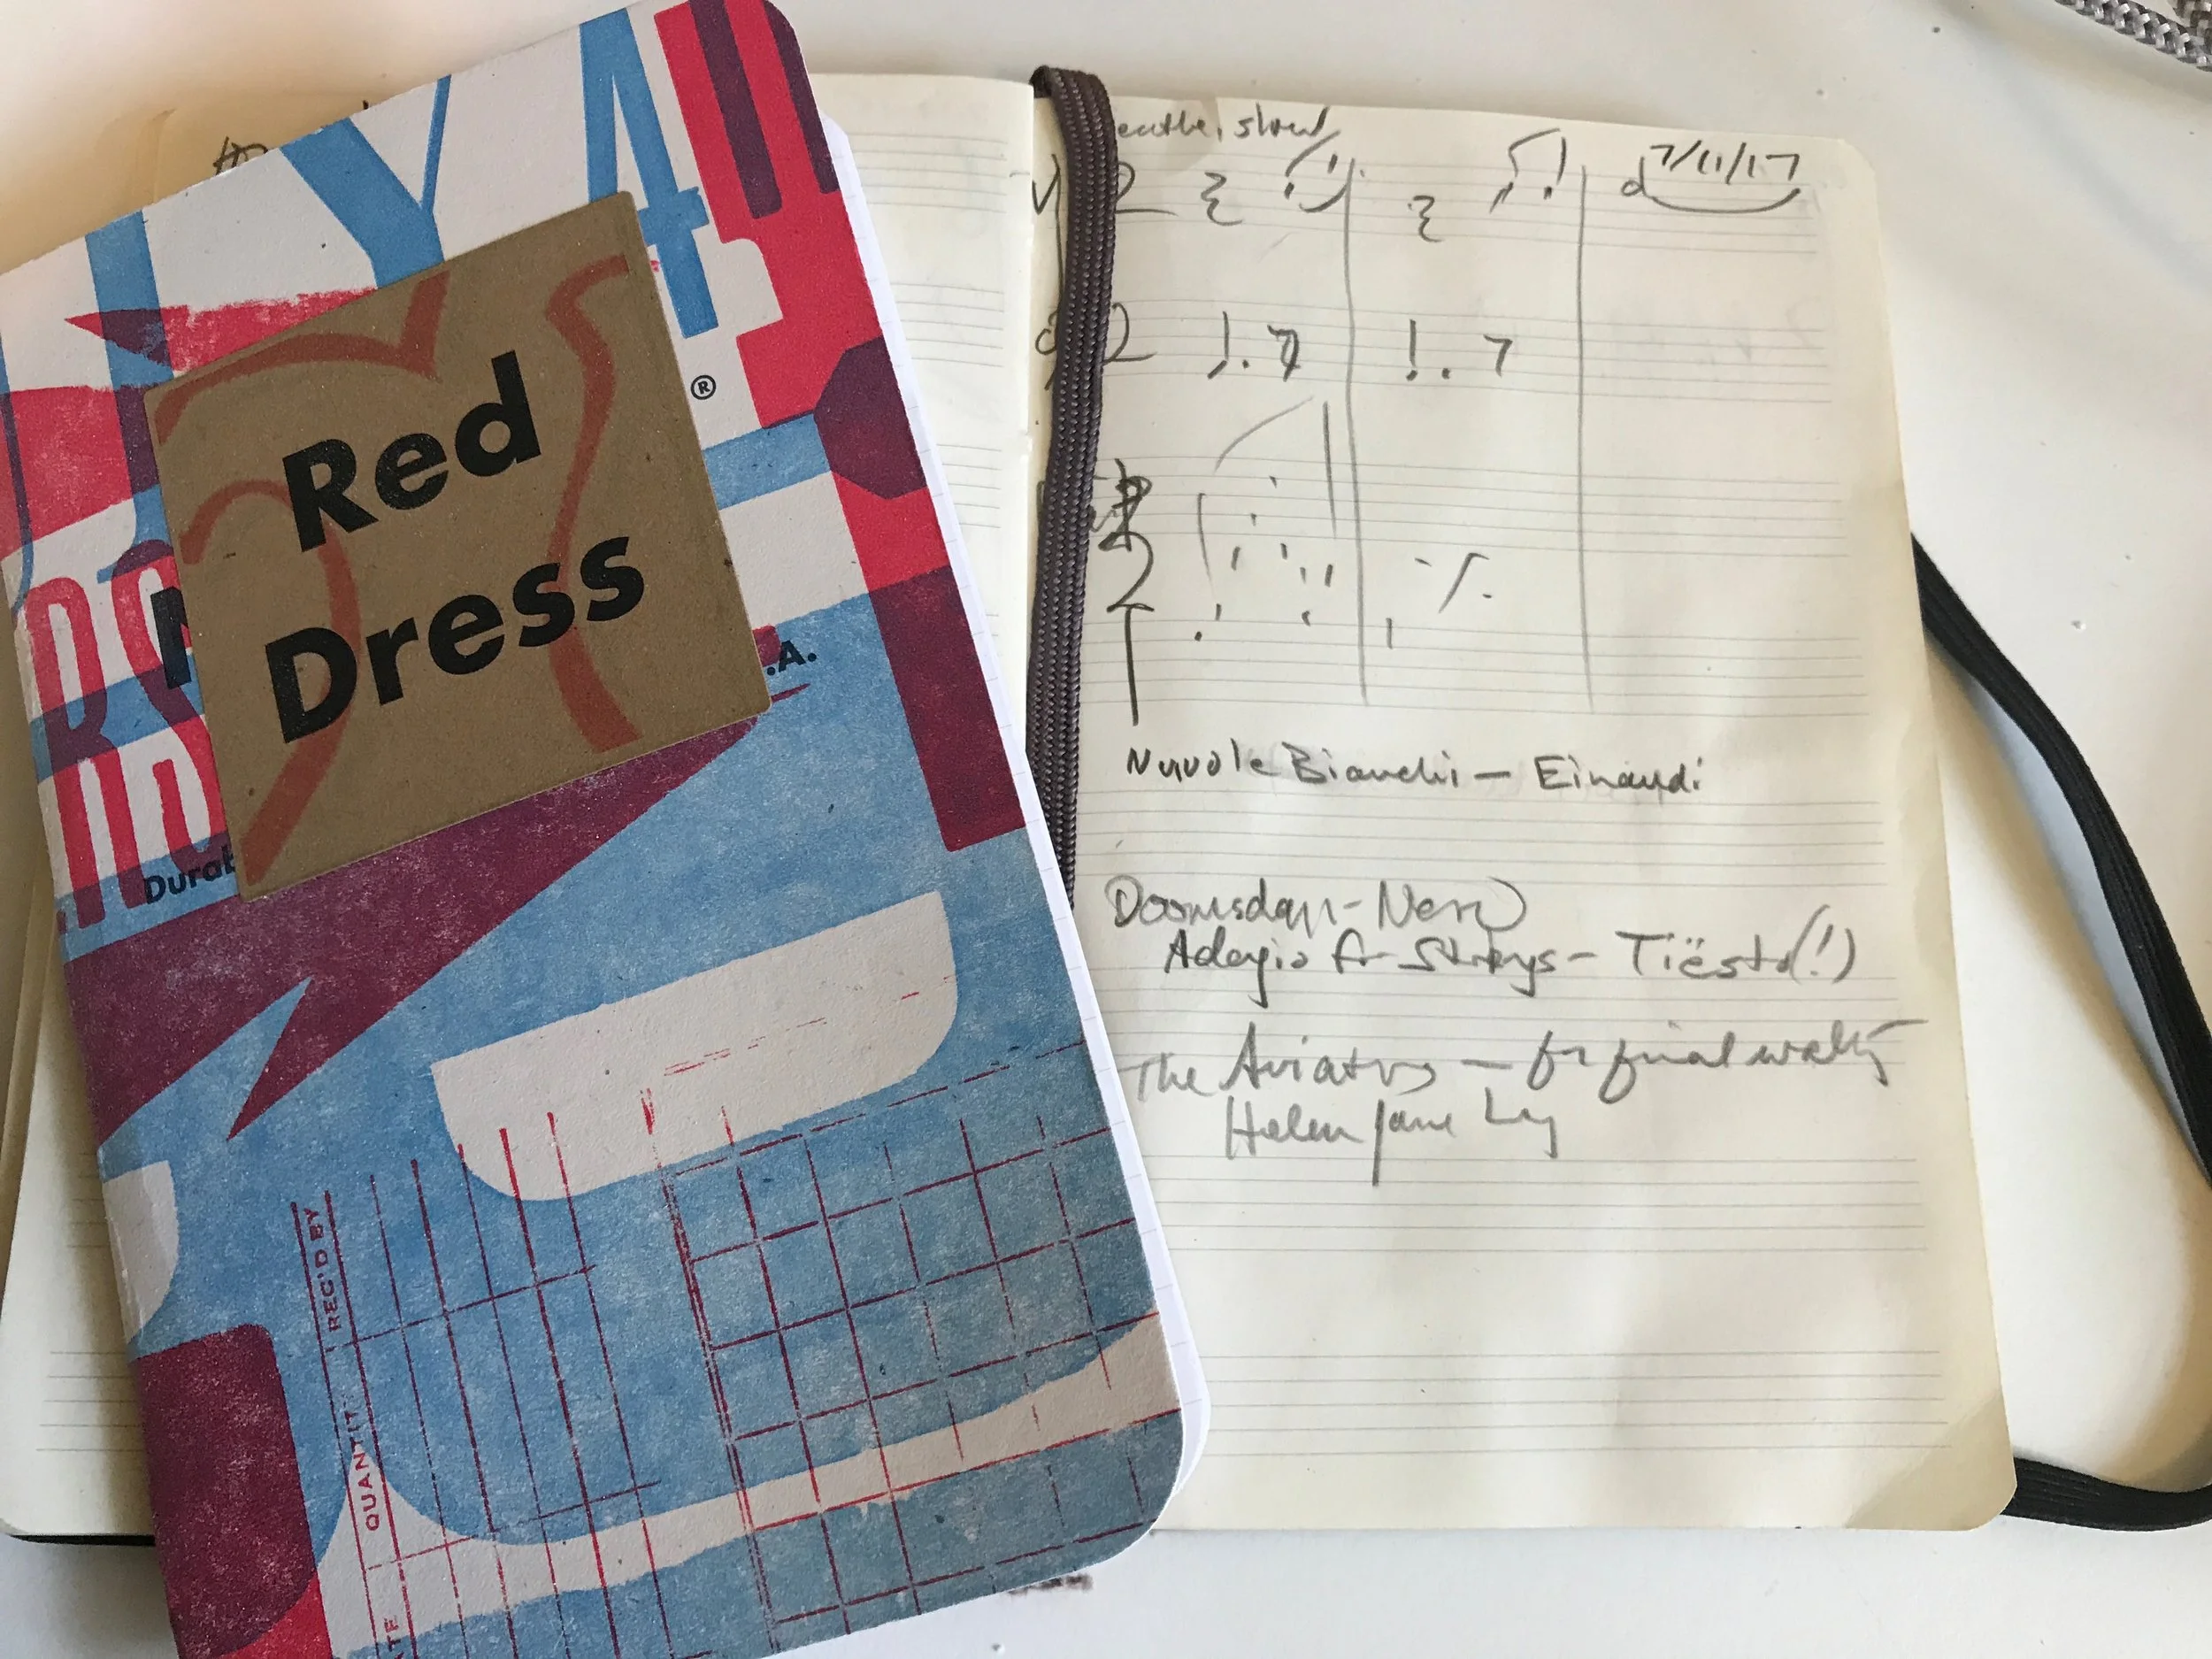 Red
Dress
®
.A.
Durab
REC'D BY
QUANTIT
ATE
slow
7/11/17
2
2
2
Nuvole Bianchi — Einaudi
Doomsday - Nero
Adagio for Strings - Tiësto (!)
The Aviators — for final waltz
Helen Jane Long